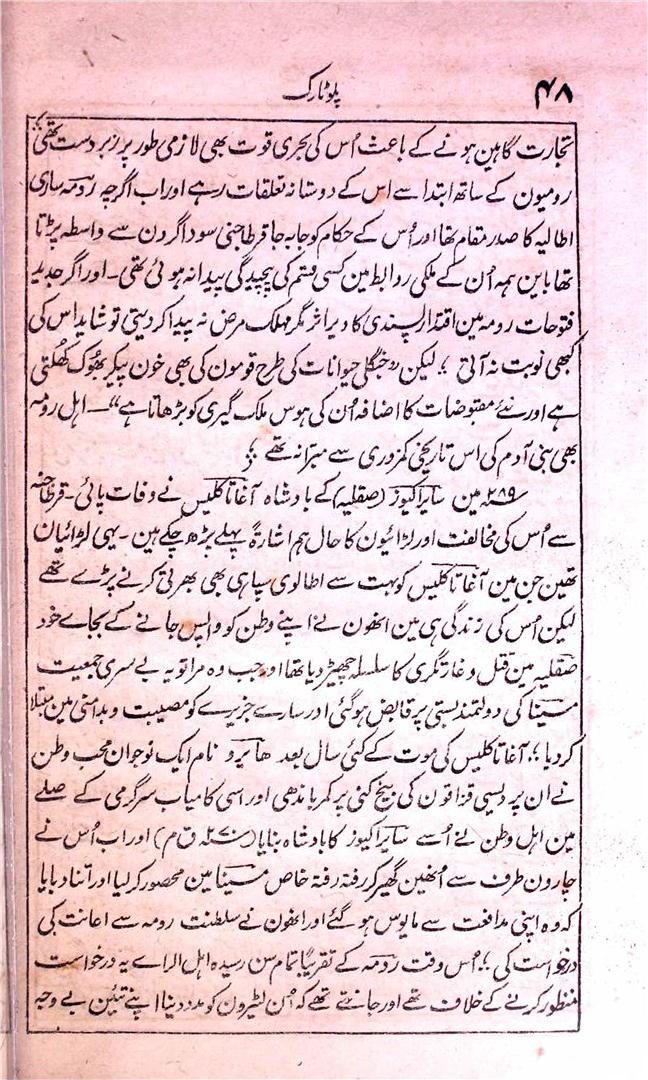 ۴۸
پلوٹارک
تجارت گاہین ہونے کے باعث اُس کی بحری قوت بھی لازمی طور پر زبردست تھی؛
رومیون کے ساتھ ابتدا سے اس کے دوستانہ تعلقات رہے اور اب اگرچہ رومہ ساری
اطالیہ کا صدر مقام تھا اور اُس کے حکام کو جا بہ جا قرطاجنی سوداگرون سے واسطہ پڑتا
تھا باین ہمہ اُن کے ملکی روابط مین کسی قسم کی پیچیدگی پیدا نہ ہوئی تھی۔ اور اگر جدید
فتوحات رومہ مین اقتدار پسندی کا دیر اثر مگر مہلک مرض نہ پیدا کر دیتی تو شاید اس کی
کبھی نوبت نہ آتی ؛ لیکن "جنگلی حیوانات کی طرح قومون کی بھی خون پیکر بھوک کھُلتی
ہے اور نئے مقبوضات کا اضافہ اُن کی ہوس ملک گیری کو بڑھاتا ہے"۔ اہل رومہ
بھی بنی آدم کی اس تاریخی کمزوری سے مبرا نہ تھے ؛
۲۸۹ مین سایراکیوز (صقلیہ) کے بادشاہ آغاتاکلیس نے وفات پائی۔ قرطاجنہ
سے اُس کی مخالفت اور لڑائیون کا حال ہم اشارۃً پہلے پڑھ چکے ہین۔ یہی لڑائیان
تھین جن مین آغاتاکلیس کو بہت سے اطالوی سپاہی بھی بھرتی کرنے پڑے تھے
لیکن اُس کی زندگی ہی مین انھون نے اپنے وطن کو واپس جانے کے بجاے خود
صقلیہ مین قتل و غارتگری کا سلسلہ چھیڑ دیا تھا اور جب وہ مرا تو یہ بے سری جمعیت
مسینا کی دولتمند بستی پر قابض ہو گئی اور سارے جزیرے کو مصیبت و بدامنی مین مبتلا
کر دیا ؛ آغاتاکلیس کی موت کے کئی سال بعد ہائرو نام ایک نوجوان محب وطن
نے ان پردیسی قزاقون کی بیخ کنی پر کمر باندھی اور اسی کامیاب سرگرمی کے صلے
مین اہل وطن نے اُسے سایراکیوز کا بادشاہ بنایا (۲۷۰ ق م) اور اب اُس نے
چارون طرف سے اُنھین گھیر کر رفتہ رفتہ خاص مسینا مین محصور کر لیا اور اتنا دبایا
کہ وہ اپنی مدافعت سے مایوس ہو گئے اور انھون نے سلطنت رومہ سے اعانت کی
درخواست کی ؛ اُس وقت رومہ کے تقریباً تمام سن رسیدہ اہل الراے یہ درخواست
منظور کرنے کے خلاف تھے اور جانتے تھے کہ اُن لٹیرون کو مدد دینا اپنے تئین بے وجہ